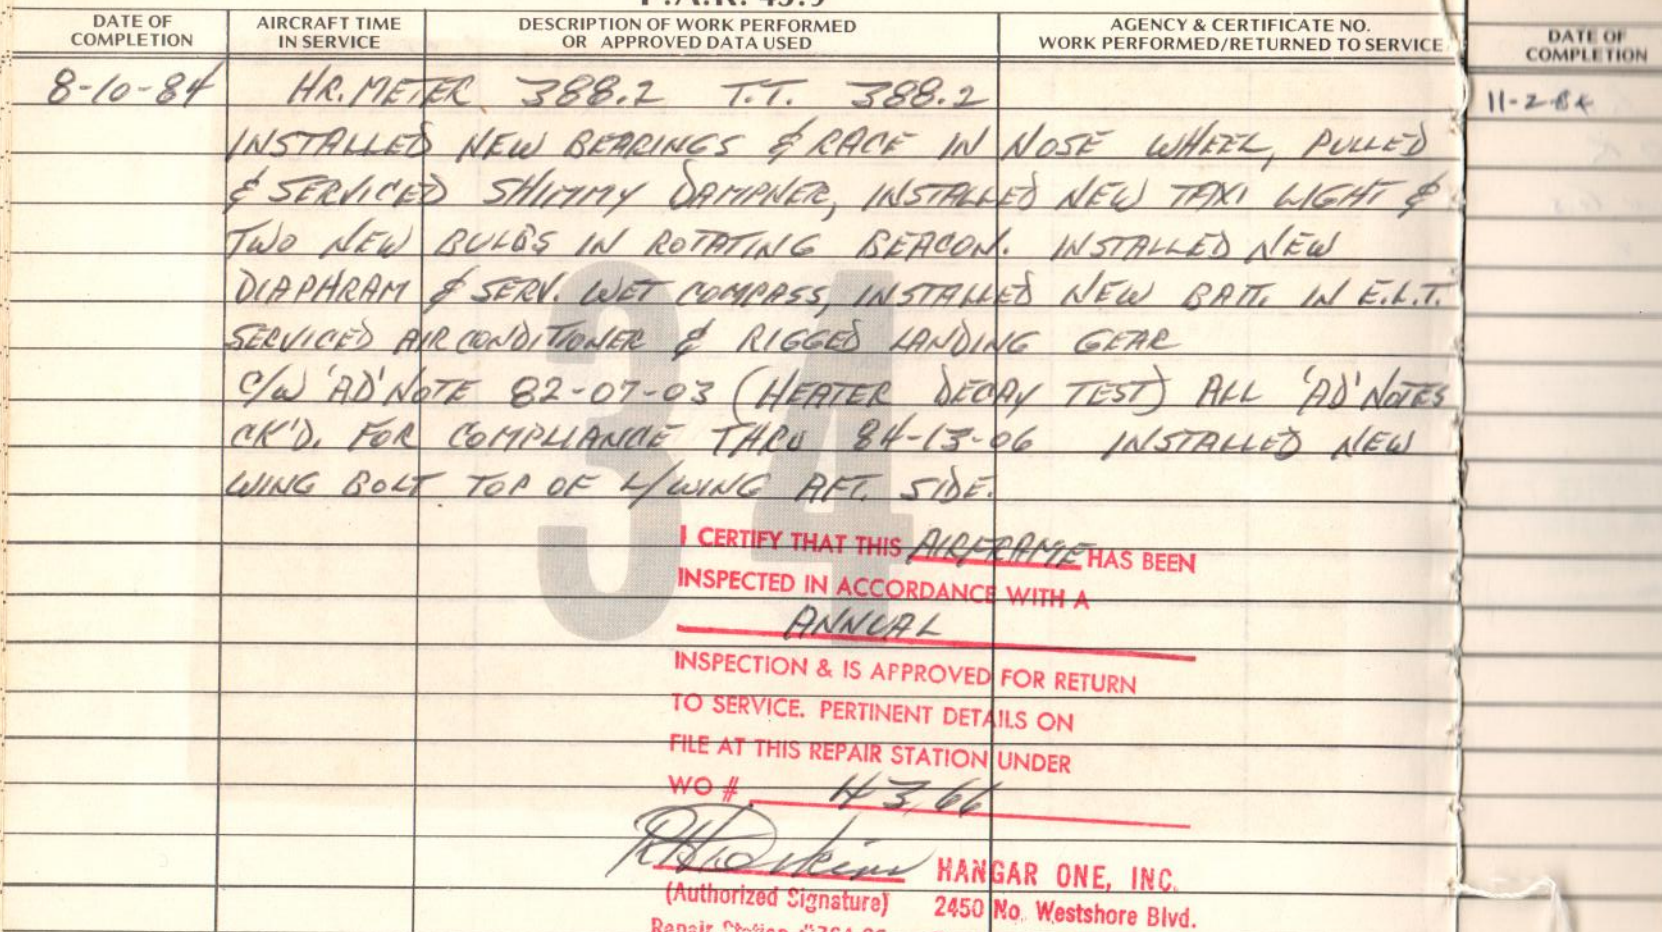 F.A.R. 43.9
DATE OF COMPLETION
AIRCRAFT TIME IN SERVICE
DESCRIPTION OF WORK PERFORMED OR APPROVED DATA USED
AGENCY & CERTIFICATE NO. WORK PERFORMED/RETURNED TO SERVICE
8-10-84 HR. METER 388.2 T.T. 388.2
INSTALLED NEW BEARINGS & RACE IN NOSE WHEEL, PULLED
& SERVICED SHIMMY DAMPNER, INSTALLED NEW TAXI LIGHT &
TWO NEW BULBS IN ROTATING BEACON. INSTALLED NEW
DIAPHRAM & SERV. WET COMPASS, INSTALLED NEW BATT. IN E.L.T.
SERVICED AIR CONDITIONER & RIGGED LANDING GEAR
C/W 'AD' NOTE 82-07-03 (HEATER DECAY TEST) ALL 'AD' NOTES
CK'D. FOR COMPLIANCE THRU 84-13-06 INSTALLED NEW
WING BOLT TOP OF L/WING AFT. SIDE.
34
I CERTIFY THAT THIS AIRFRAME HAS BEEN
INSPECTED IN ACCORDANCE WITH A
ANNUAL
INSPECTION & IS APPROVED FOR RETURN
TO SERVICE. PERTINENT DETAILS ON
FILE AT THIS REPAIR STATION UNDER
WO #
(Authorized Signature)
Repair Station
HANGAR ONE, INC.
2450 No. Westshore Blvd.
DATE OF COMPLETION
11-2-84